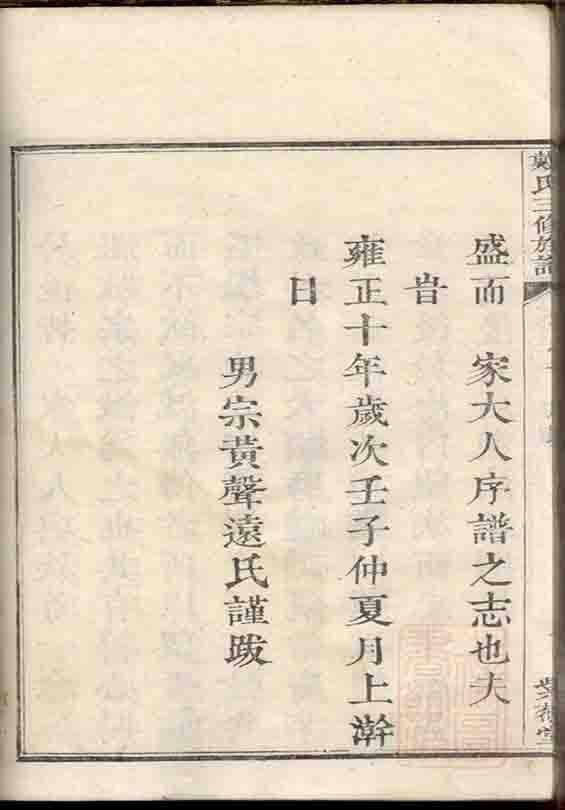 戴氏三修族譜
盛而　家大人序譜之志也夫
旹
雍正十年歲次壬子仲夏月上澣
日
男宗黄聲遠氏謹跋